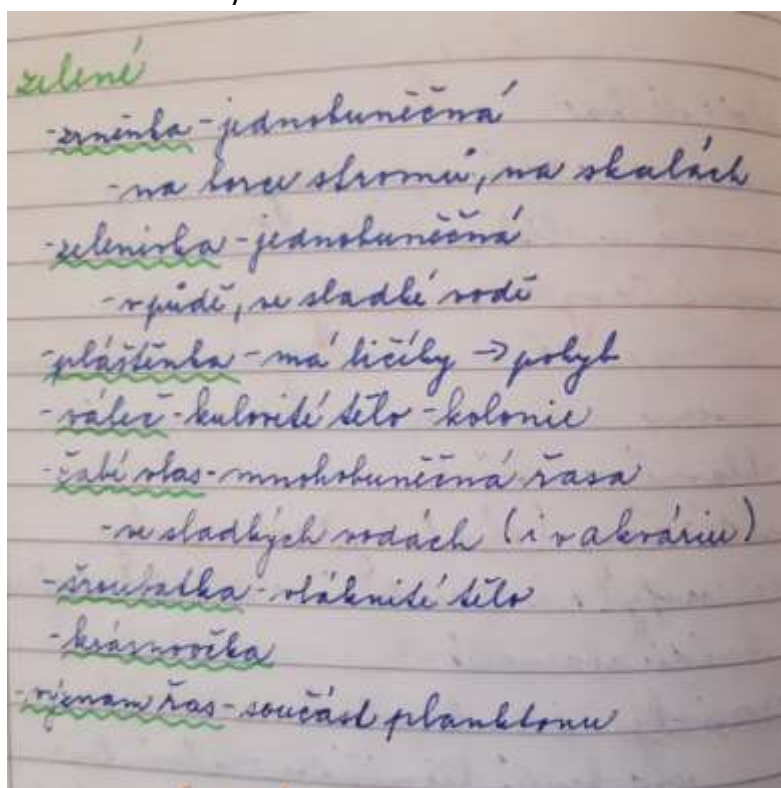 zelené
- zrněnka - jednobuněčná
- na borce stromů, na skalách
- zelenivka - jednobuněčná
- v půdě, ve sladké vodě
- pláštěnka - má bičíky → pohyb
- váleč - kulovité tělo - kolonie
- žabí vlas - mnohobuněčná řasa
- ve sladkých vodách (i v akváriu)
- šroubatka - vláknité tělo
- krásnoočka
- význam řas - součást planktonu